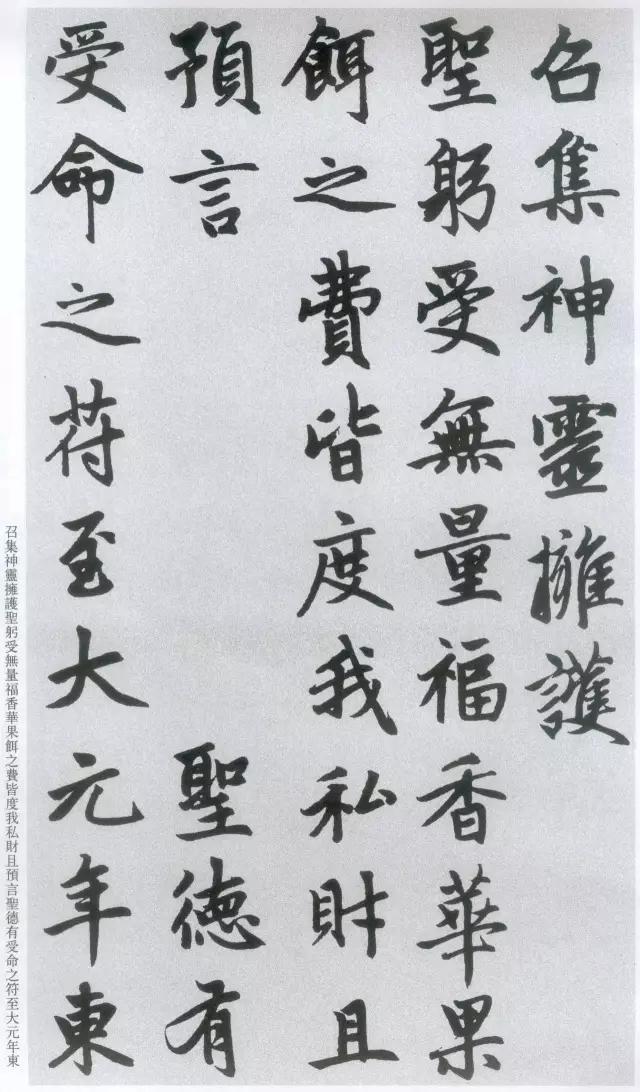 召集神靈擁護
聖躬受無量福香華果
餌之費皆度我私財且
預言聖德有
受命之符至大元年東
召集神靈擁護聖躬受無量福香華果餌之費皆度我私財且預言聖德有受命之符至大元年東